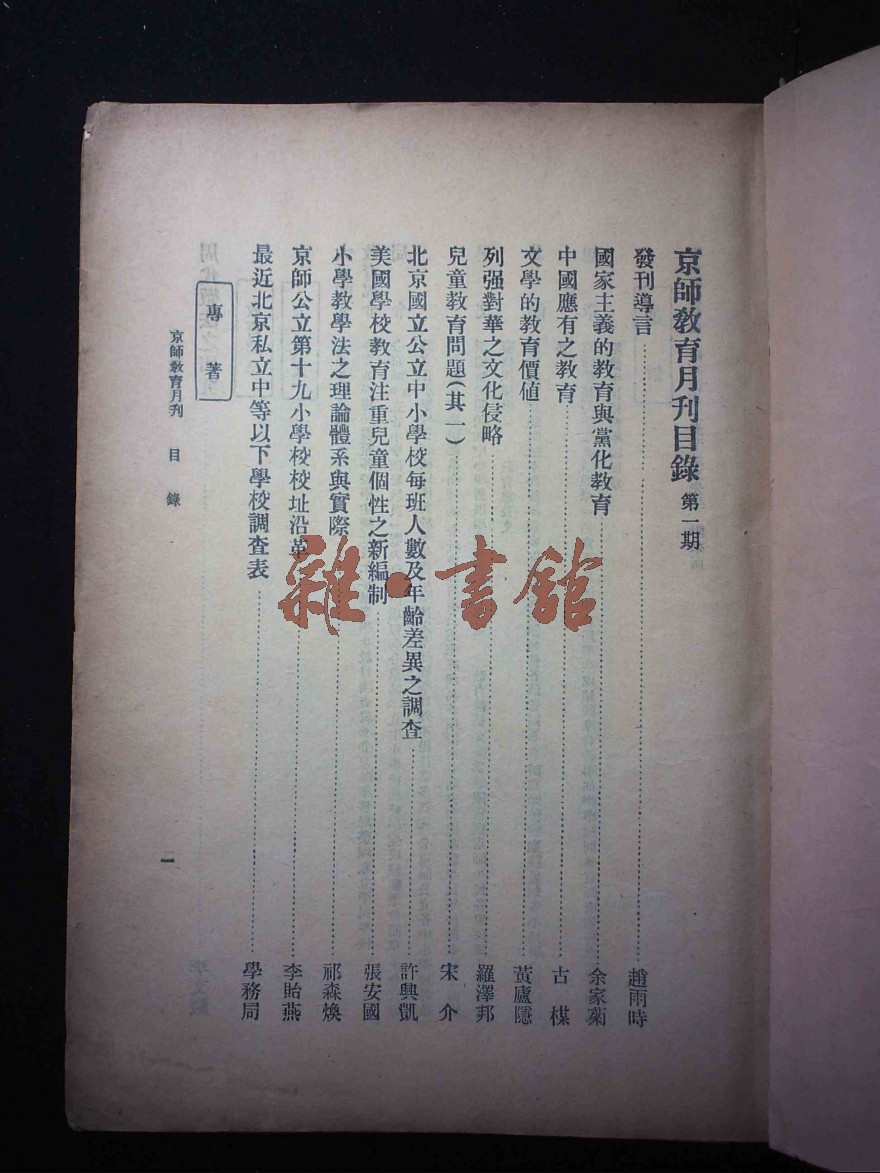 京師教育月刊目錄 第一期
發刊導言 趙雨時
國家主義的教育與黨化教育 余家菊
中國應有之教育 古楳
文學的教育價値 黃廬隱
列强對華之文化侵略 羅澤邦
兒童教育問題(其一) 宋介
北京國立公立中小學校每班人數及年齡差異之調查 許興凱
美國學校教育注重兒童個性之新編制 張安國
小學教學法之理論體系與實際 祁森煥
京師公立第十九小學校校址沿革 李貽燕
最近北京私立中等以下學校調查表 學務局
專著
京師教育月刊 目錄
二
雜·書館